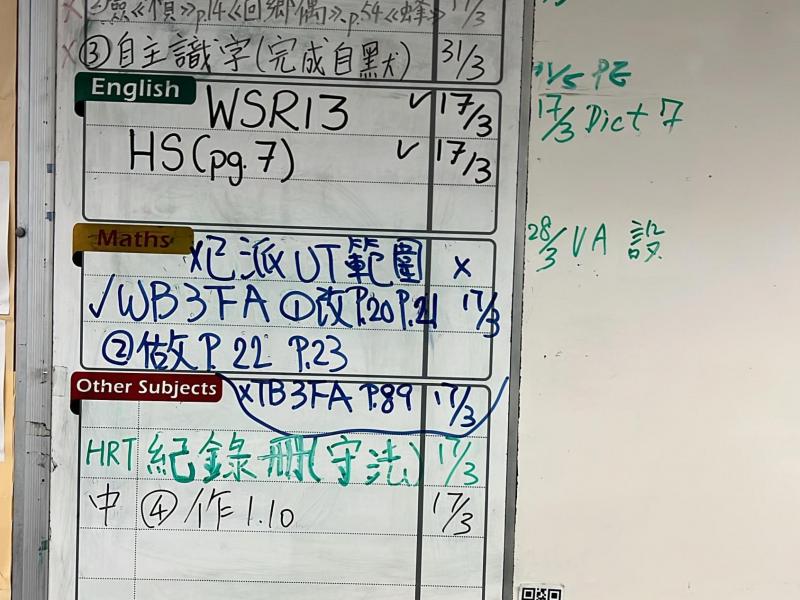 p.14《回鄉偶》p.54《蜂》 17/3
x ③自主識字(完成自默) 31/3
English
WSR13 ✓ 17/3
HS(pg.7) ✓ 17/3
Maths
x已派UT範圍 x
✓WB3FA ①改P.20 P.21 17/3
②做P.22 P.23
Other Subjects
xTB3FA P.89 17/3
HRT 紀錄冊(守法) 17/3
中 ④作1.10 17/3
PE
17/3 Dict 7
28/3 VA 設